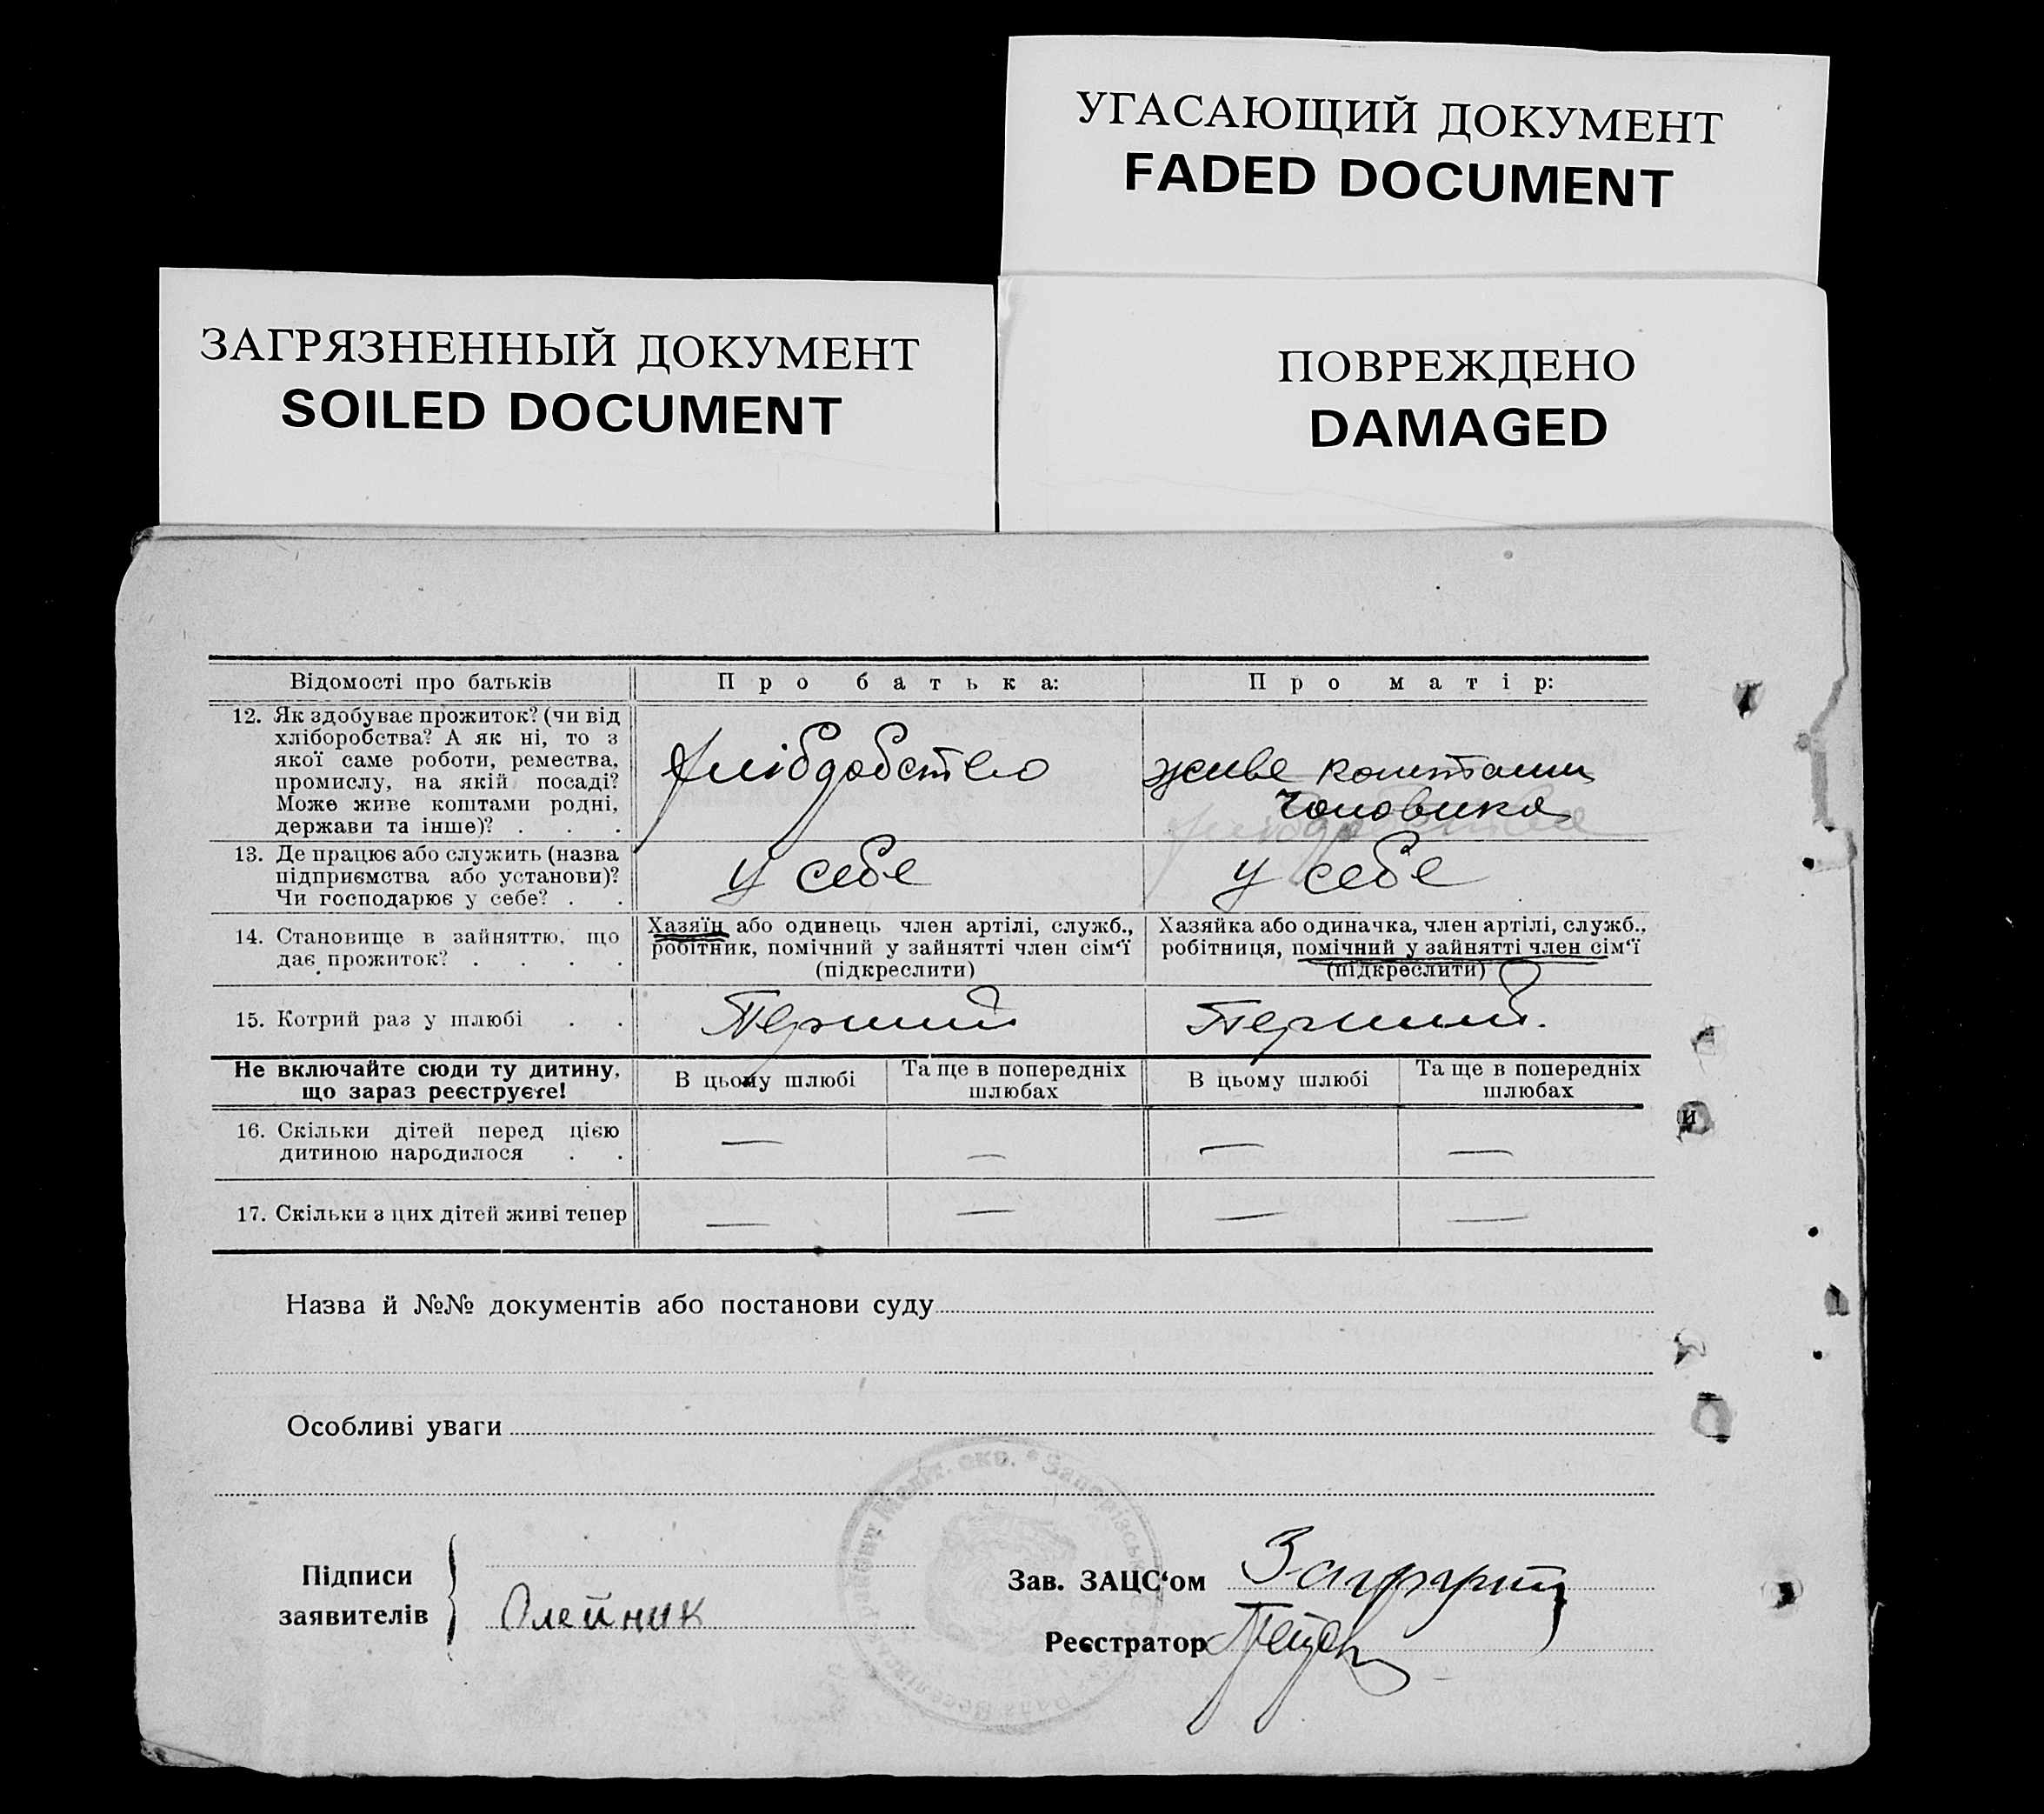 УГАСАЮЩИЙ ДОКУМЕНТ
FADED DOCUMENT
ЗАГРЯЗНЕННЫЙ ДОКУМЕНТ
SOILED DOCUMENT
ПОВРЕЖДЕНО
DAMAGED
Відомості про батьків
Про батька:
Про матір:
12. Як здобуває прожиток? (чи від
хліборобства? А як ні, то з
якої саме роботи, ремества,
промислу, на якій посаді?
Може живе коштами родні,
держави та інше)? . . .
хлібробство
живе коштами
чоловика
13. Де працює або служить (назва
підприємства або установи)?
Чи господарює у себе? . .
у себе
у себе
14. Становище в зайняттю, що
дає прожиток? . . . .
Хазяїн або одинець член артілі, служб.,
робітник, помічний у зайнятті член сім'ї
(підкреслити)
Хазяйка або одиначка, член артілі, служб.,
робітниця, помічний у зайнятті член сім'ї
(підкреслити)
15. Котрий раз у шлюбі . .
Перший
Перший.
Не включайте сюди ту дитину,
що зараз реєструєте!
В цьому шлюбі
Та ще в попередніх
шлюбах
В цьому шлюбі
Та ще в попередніх
шлюбах
16. Скільки дітей перед цією
дитиною народилося . .
—
—
—
—
17. Скільки з цих дітей живі тепер
—
—
—
—
Назва й №№ документів або постанови суду
Особливі уваги
Підписи
заявителів
Олейник
Зав. ЗАЦС'ом
Реєстратор